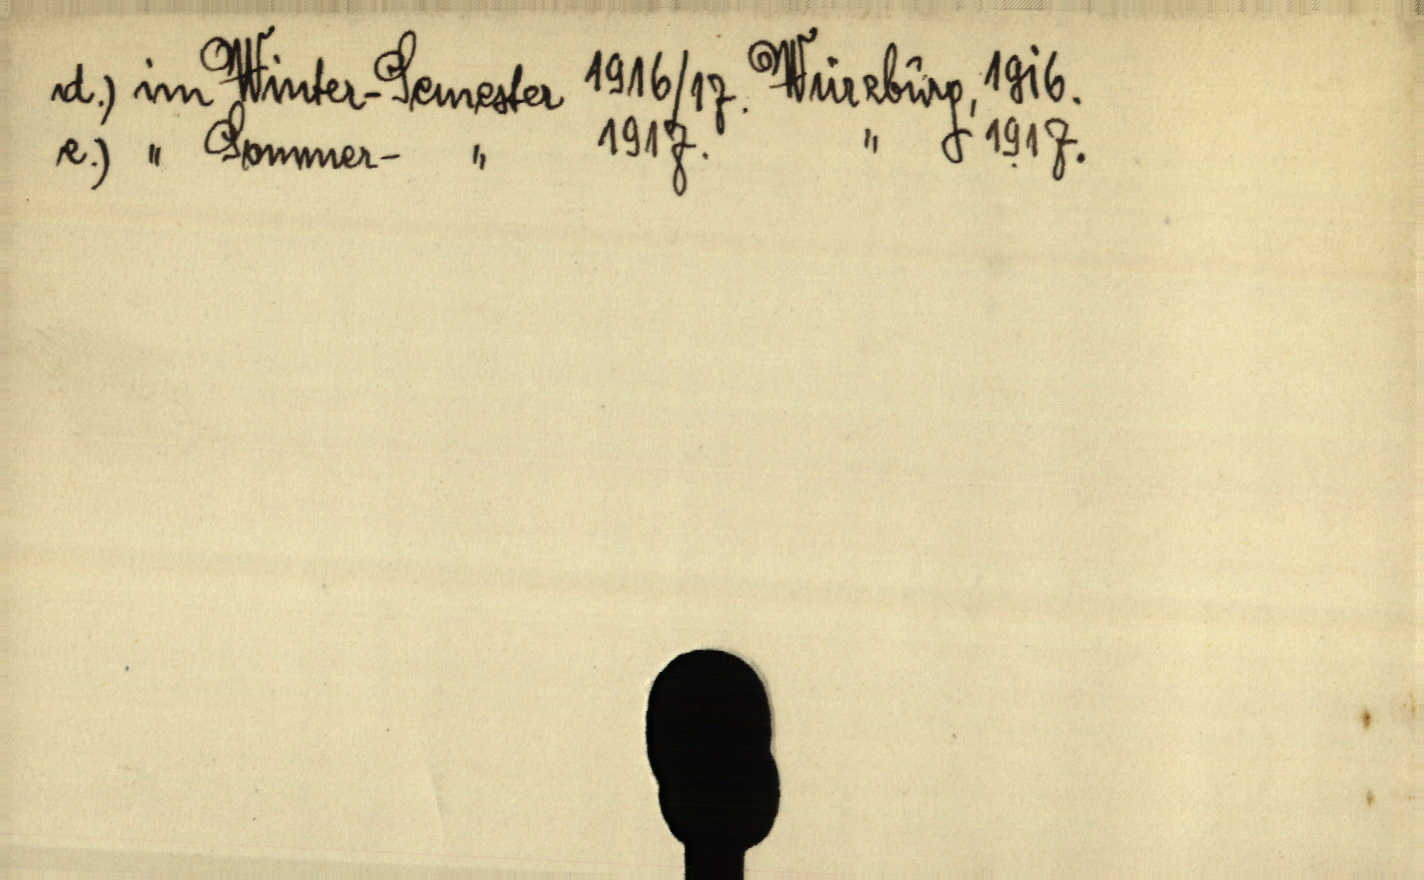 d.) im Winter-Semester 1916/17. Würzbûrg, 1916.
e.) " Sommer- " 1917. " 1917.